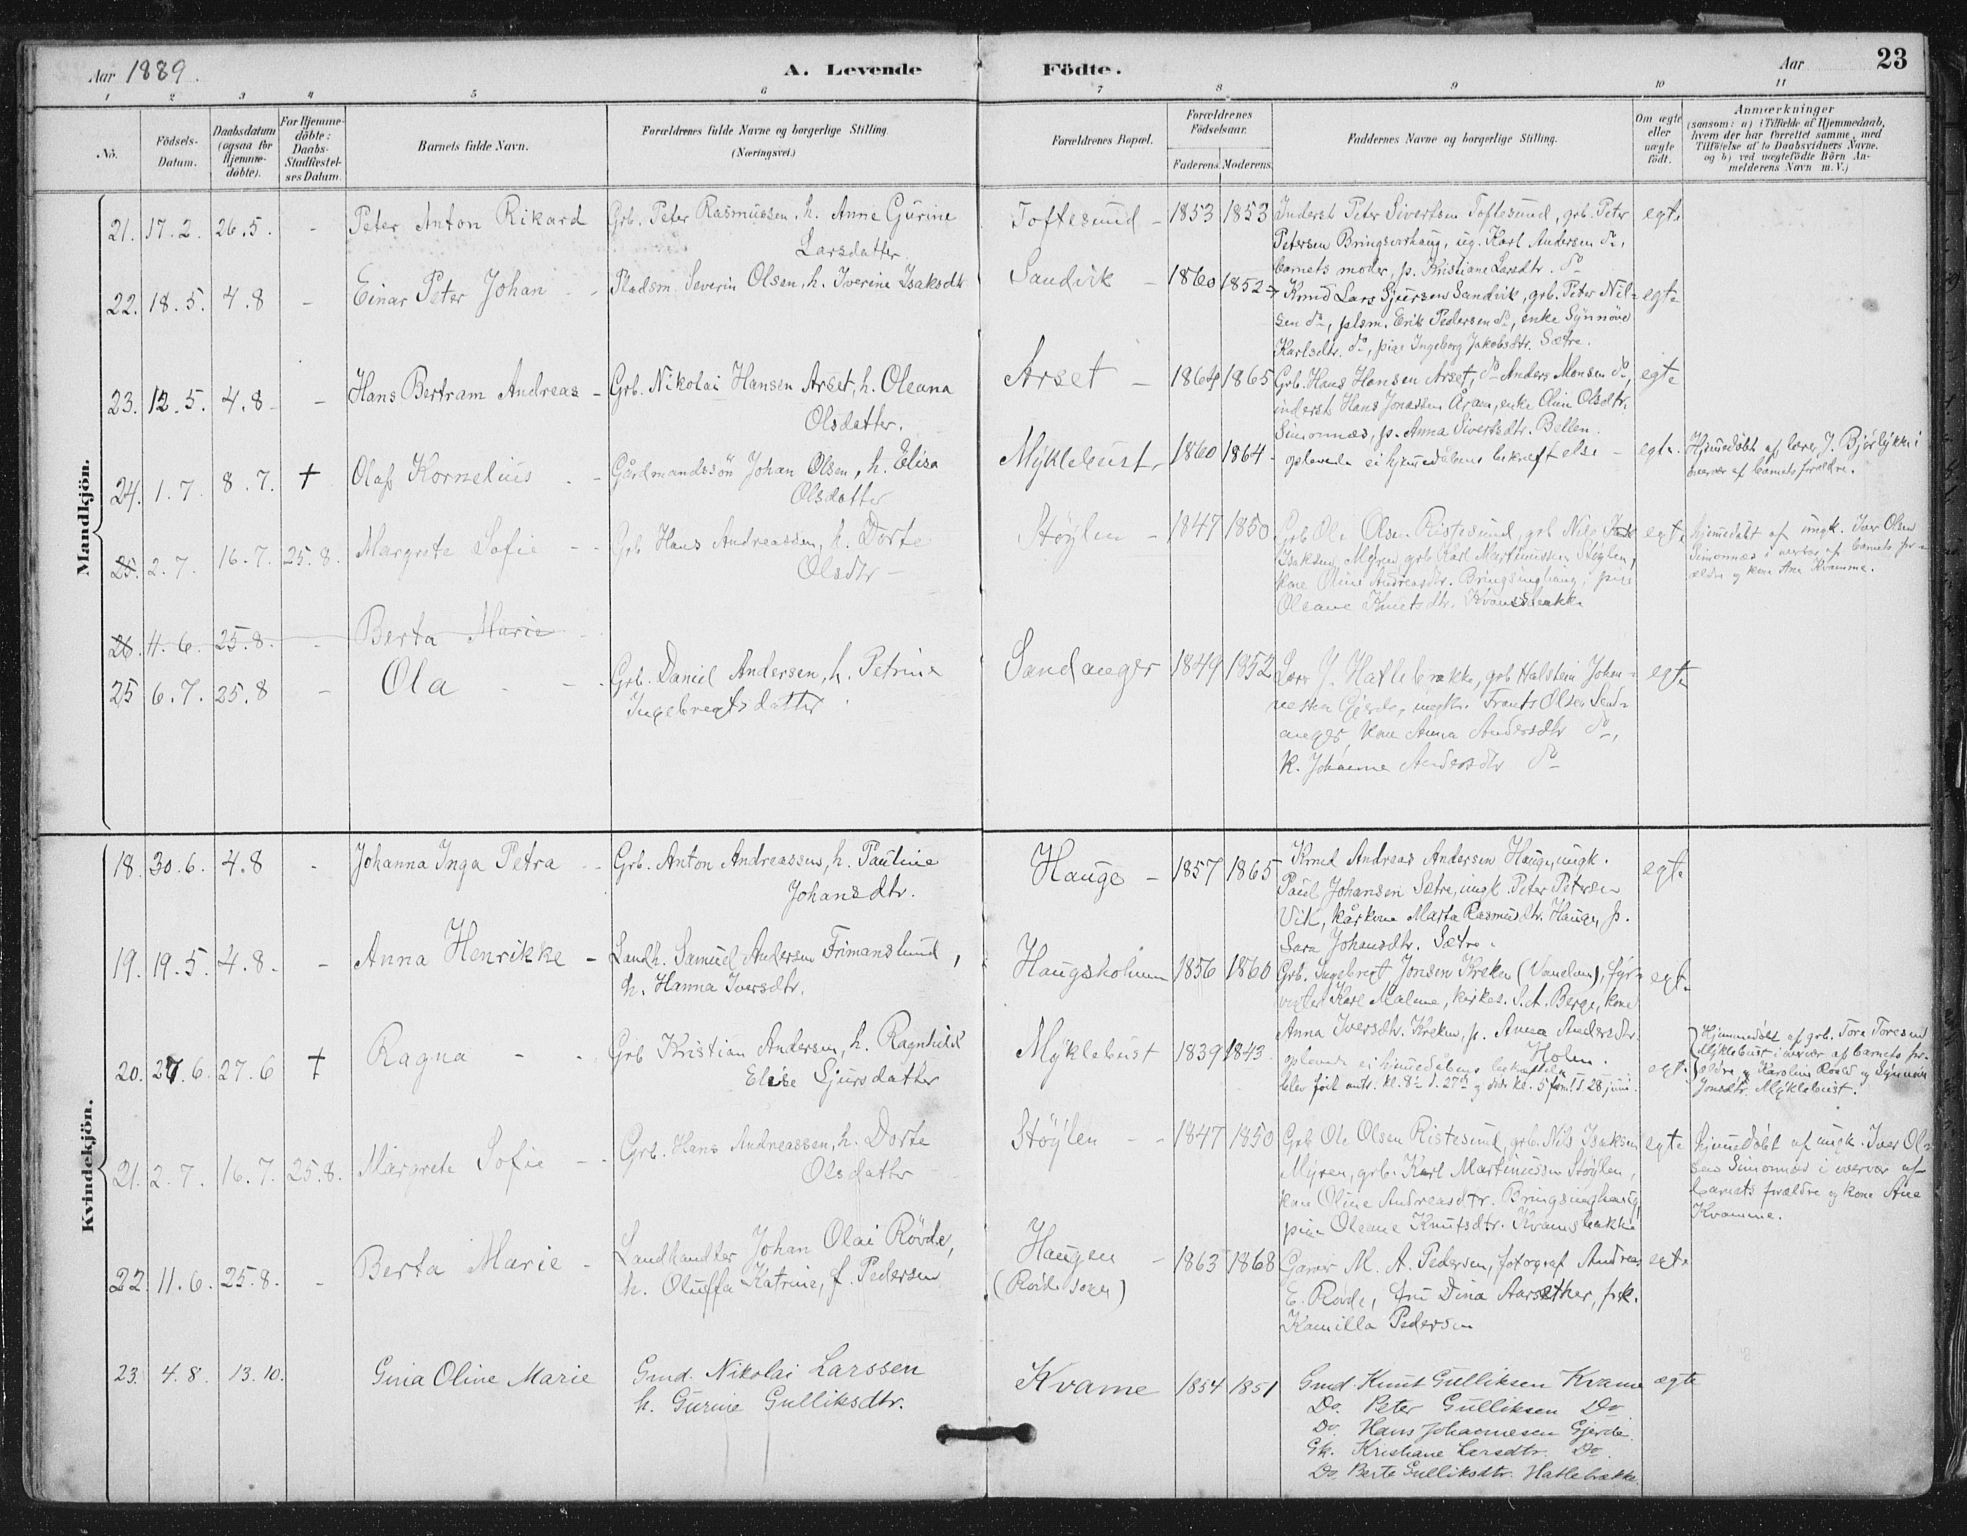 Aar 1889.
A. Levende Födte.
Aar
23
1 2 3 4 5 6 7 8 9 10 11
No.
Födsels-Datum.
Daabsdatum (ogsaa for Hjemmedöbte).
For Hjemmedöbte: Daabs-Stadfestelses Datum.
Barnets fulde Navn.
Forældrenes fulde Navne og borgerlige Stilling. (Næringsvei.)
Forældrenes Bopæl.
Forældrenes Födselsaar.
Faderens. Moderens.
Faddernes Navne og borgerlige Stilling.
Om ægte eller uægte födt.
Anmærkninger
(saasom: a) i Tilfælde af Hjemmedaab, hvem der har forrettet samme, med Tilföielse af to Daabsvidners Navne, og b) ved uægtefödte Börn Anmelderens Navn m. V.)
Mandkjön.
21. 17.2. 26.5. - Peter Anton Rikard
Grb. Peter Rasmussen, h. Anne Gurine
Larsdatter.
Toftesund - 1853 1853
Inderst Peter Sivertsen Toftesund, grb. Peter
Petersen Bringsvorhaug, ug. Karl Andersen do,
barnets moder, p. Kristiane Larsdtr. do
egte
22. 18.5. 4.8 - Einar Peter Johan
Pladsm. Severin Olsen, h. Iverine Isaksdtr
Sandvik - 1860 1852
Kmd Lars Sjursen Sandvik, grb. Peter Nil-
sen do, plsm. Erik Pedersen do, enke Synnöve
Karlsdtr. do, pige Ingeborg Jakobsdtr. Sætre.
egte
23. 12.5. 4.8 - Hans Bertram Andreas
Grb. Nikolai Hansen Arset, h. Oleana
Olsdatter.
Arset - 1864 1865
Grb. Hans Hansen Arset, do Anders Monsen do,
inderst Hans Jonassen Åram, enke Oline Olsdtr.
Simonnæs, p. Anna Sivertsdtr. Bellen.
egte
24. 1.7. 8.7. † Olaf Kornelius
Gårdmandssön Johan Olsen, h. Elisa
Olsdatter
Myklebust, 1860 1864
oplevede ei hjemedåbens bekræftelse -
egte.
Hjemedöbt af lærer J. Björlykke i
overvær af barnets forældre.
25. 2.7. 16.7. 25.8. Margrete Sofie
Grb Hans Andreassen, h. Dorte
Olsdtr -
Stöylen - 1847 1850
Grb Ole Olsen Ristesund, grb Nils
Isaksen Myren, grb Karl Martinussen Stöylen,
kone Oline Andreasdtr. Bringsinghaug, pige
Oleane Knutsdtr. Kvamsbakke
egte
hjemedöbt af ungk. Iver Olsen
Simonnæs i overvær af barnets for-
ældre og kone Ane Kvamme.
26. 4.6. 25.8. - Berta Marie
25 6.7. 25.8 - Ola
Grb. Daniel Andersen, h. Petrine
Ingebregtsdatter
Sandanger 1849 1852
Lærer J. Hatlebrække, grb Halstein Johan-
nessen Gjerde, ungk. Frants Olsen Sand-
anger, kone Anna Andersdtr do,
k. Johanne Andersdtr do
egte
Kvindekjön.
18. 30.6. 4.8 - Johanna Inga Petra
Grb. Anton Andreassen, h. Pauline
Johansdtr.
Hauge - 1857 1865
Kmd Andreas Andersen Hauge, ungk.
Paul Johansen Sætre, ungk. Peter Petersen
Vik, kårkone Marta Rasmusdtr. Hauge, p.
Sara Johansdtr. Sætre.
egte
19. 19.5. 4.8. - Anna Henrikke
Landh. Samuel Andersen Frimanslund,
h. Hanna Iversdtr.
Haugsholmen 1856 1860
Grb. Ingebregt Jonsen Kreken (Vanelven), fyr-
vogter Karl Malme, kirkes. S. A. Berge, kone
Anna Iversdtr. Kreken, p. Anna Andersdtr
Holen.
egte
20. 27.6. 27.6 † Ragna
Grb Kristian Andersen, h. Ragnhild
Elise Sjursdatter
Myklebust 1839 1843
oplevede ei hjemedåbens bekræftelse
blev født omtr. kl. 8½ d. 27de og døde kl. 5 fm. d 28 juni.
egte
Hjemmedöbt af grb. Tore Toresen
Myklebust i overvær af barnets for-
ældre, og Karoline Roald og Synnöve
Jonsdtr. Myklebust.
21. 2.7. 16.7. 25.8. Margrete Sofie
Grb. Hans Andreassen, h. Dorte
Olsdatter
Stöylen - 1847 1850
Grb Ole Olsen Ristesund, grb. Nils Isaksen
Myren, grb. Karl Martinussen Stöylen,
kone Oline Andreasdtr. Bringsinghaug,
pige Oleane Knutsdtr. Kvamsbakke
egte
hjemedöbt af ungk. Iver Ol-
sen Simonnæs i overvær af
barnets forældre og kone Ane
Kvamme.
22. 11.6. 25.8. - Berta Marie
Landhandler Johan Olai Rövde,
h. Oluffa Katrine, f. Pedersen
Haugen
(Rövde sogn)
1863 1868
Garver M. A. Pedersen, fotograf Andreas
E. Rövde, fru Dina Aarsæther, frk.
Kamilla Pedersen
egte
23. 4.8. 13.10. Gina Oline Marie
Gmd. Nikolai Larssen
h. Gurine Gulliksdtr.
Kvame 1854 1851
Gmd. Knut Gulliksen Kvame
Do. Peter Gulliksen Do
Do. Hans Johannesen Gjerde
Gk. Kristiane Larsdtr. Do
Do. Berte Gulliksdtr. Hatlebrække
ægte